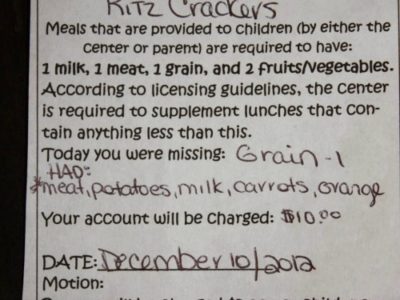 Ritz Crackers
Meals that are provided to children (by either the
center or parent) are required to have:
1 milk, 1 meat, 1 grain, and 2 fruits/vegetables.
According to licensing guidelines, the center
is required to supplement lunches that con-
tain anything less than this.
Today you were missing: Grain-1
HAD:
*meat, potatoes, milk, carrots, orange
Your account will be charged: $10.00
DATE: December 10/2012
Motion: